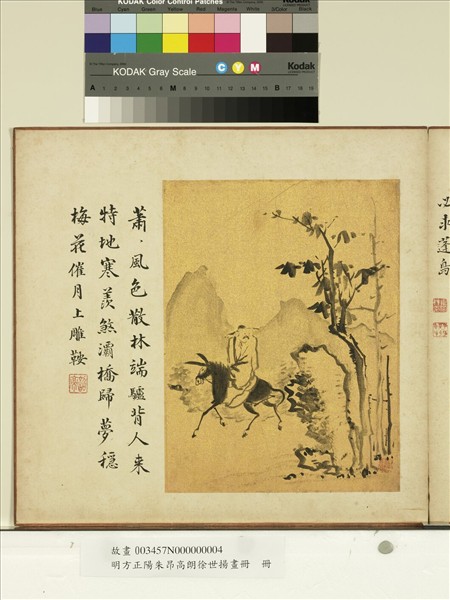 KODAK Color Control Patches
Blue Cyan Green Yellow Red Magenta White 3/Color Black
KODAK Gray Scale
C Y M
Kodak
A 1 2 3 4 5 6 M 8 9 10 11 12 13 14 15 B 17 18 19
蕭〻風色散林端驢背人来
特地寒羨煞灞橋歸夢穩
梅花催月上雕鞍
必求蓬島
故畫003457N000000004
明方正陽朱昂高朗徐世揚畫冊 冊